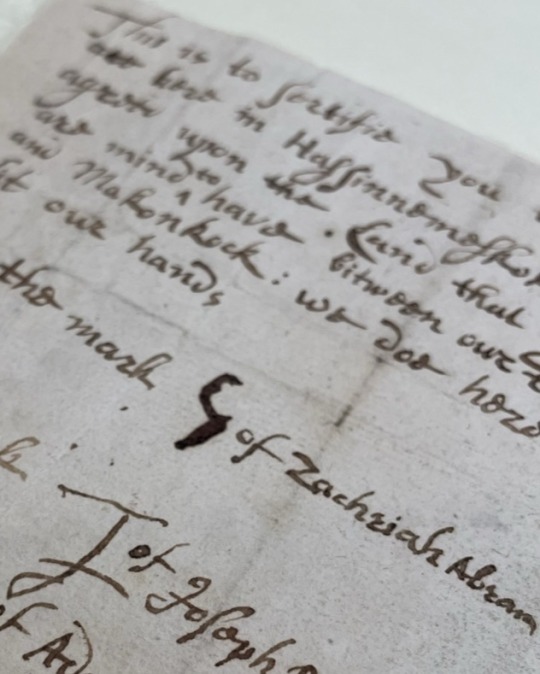 This is to sertifie you
are here in Hassinnemesho
agrede upon the Land that
are mind to have bitween our
and Makonkock: we doe here
our hands
the mark of Zachriah Abram
of Joseph
of